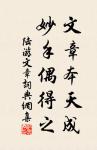 文章本天成
妙手偶得之
陸游文章詞典網集